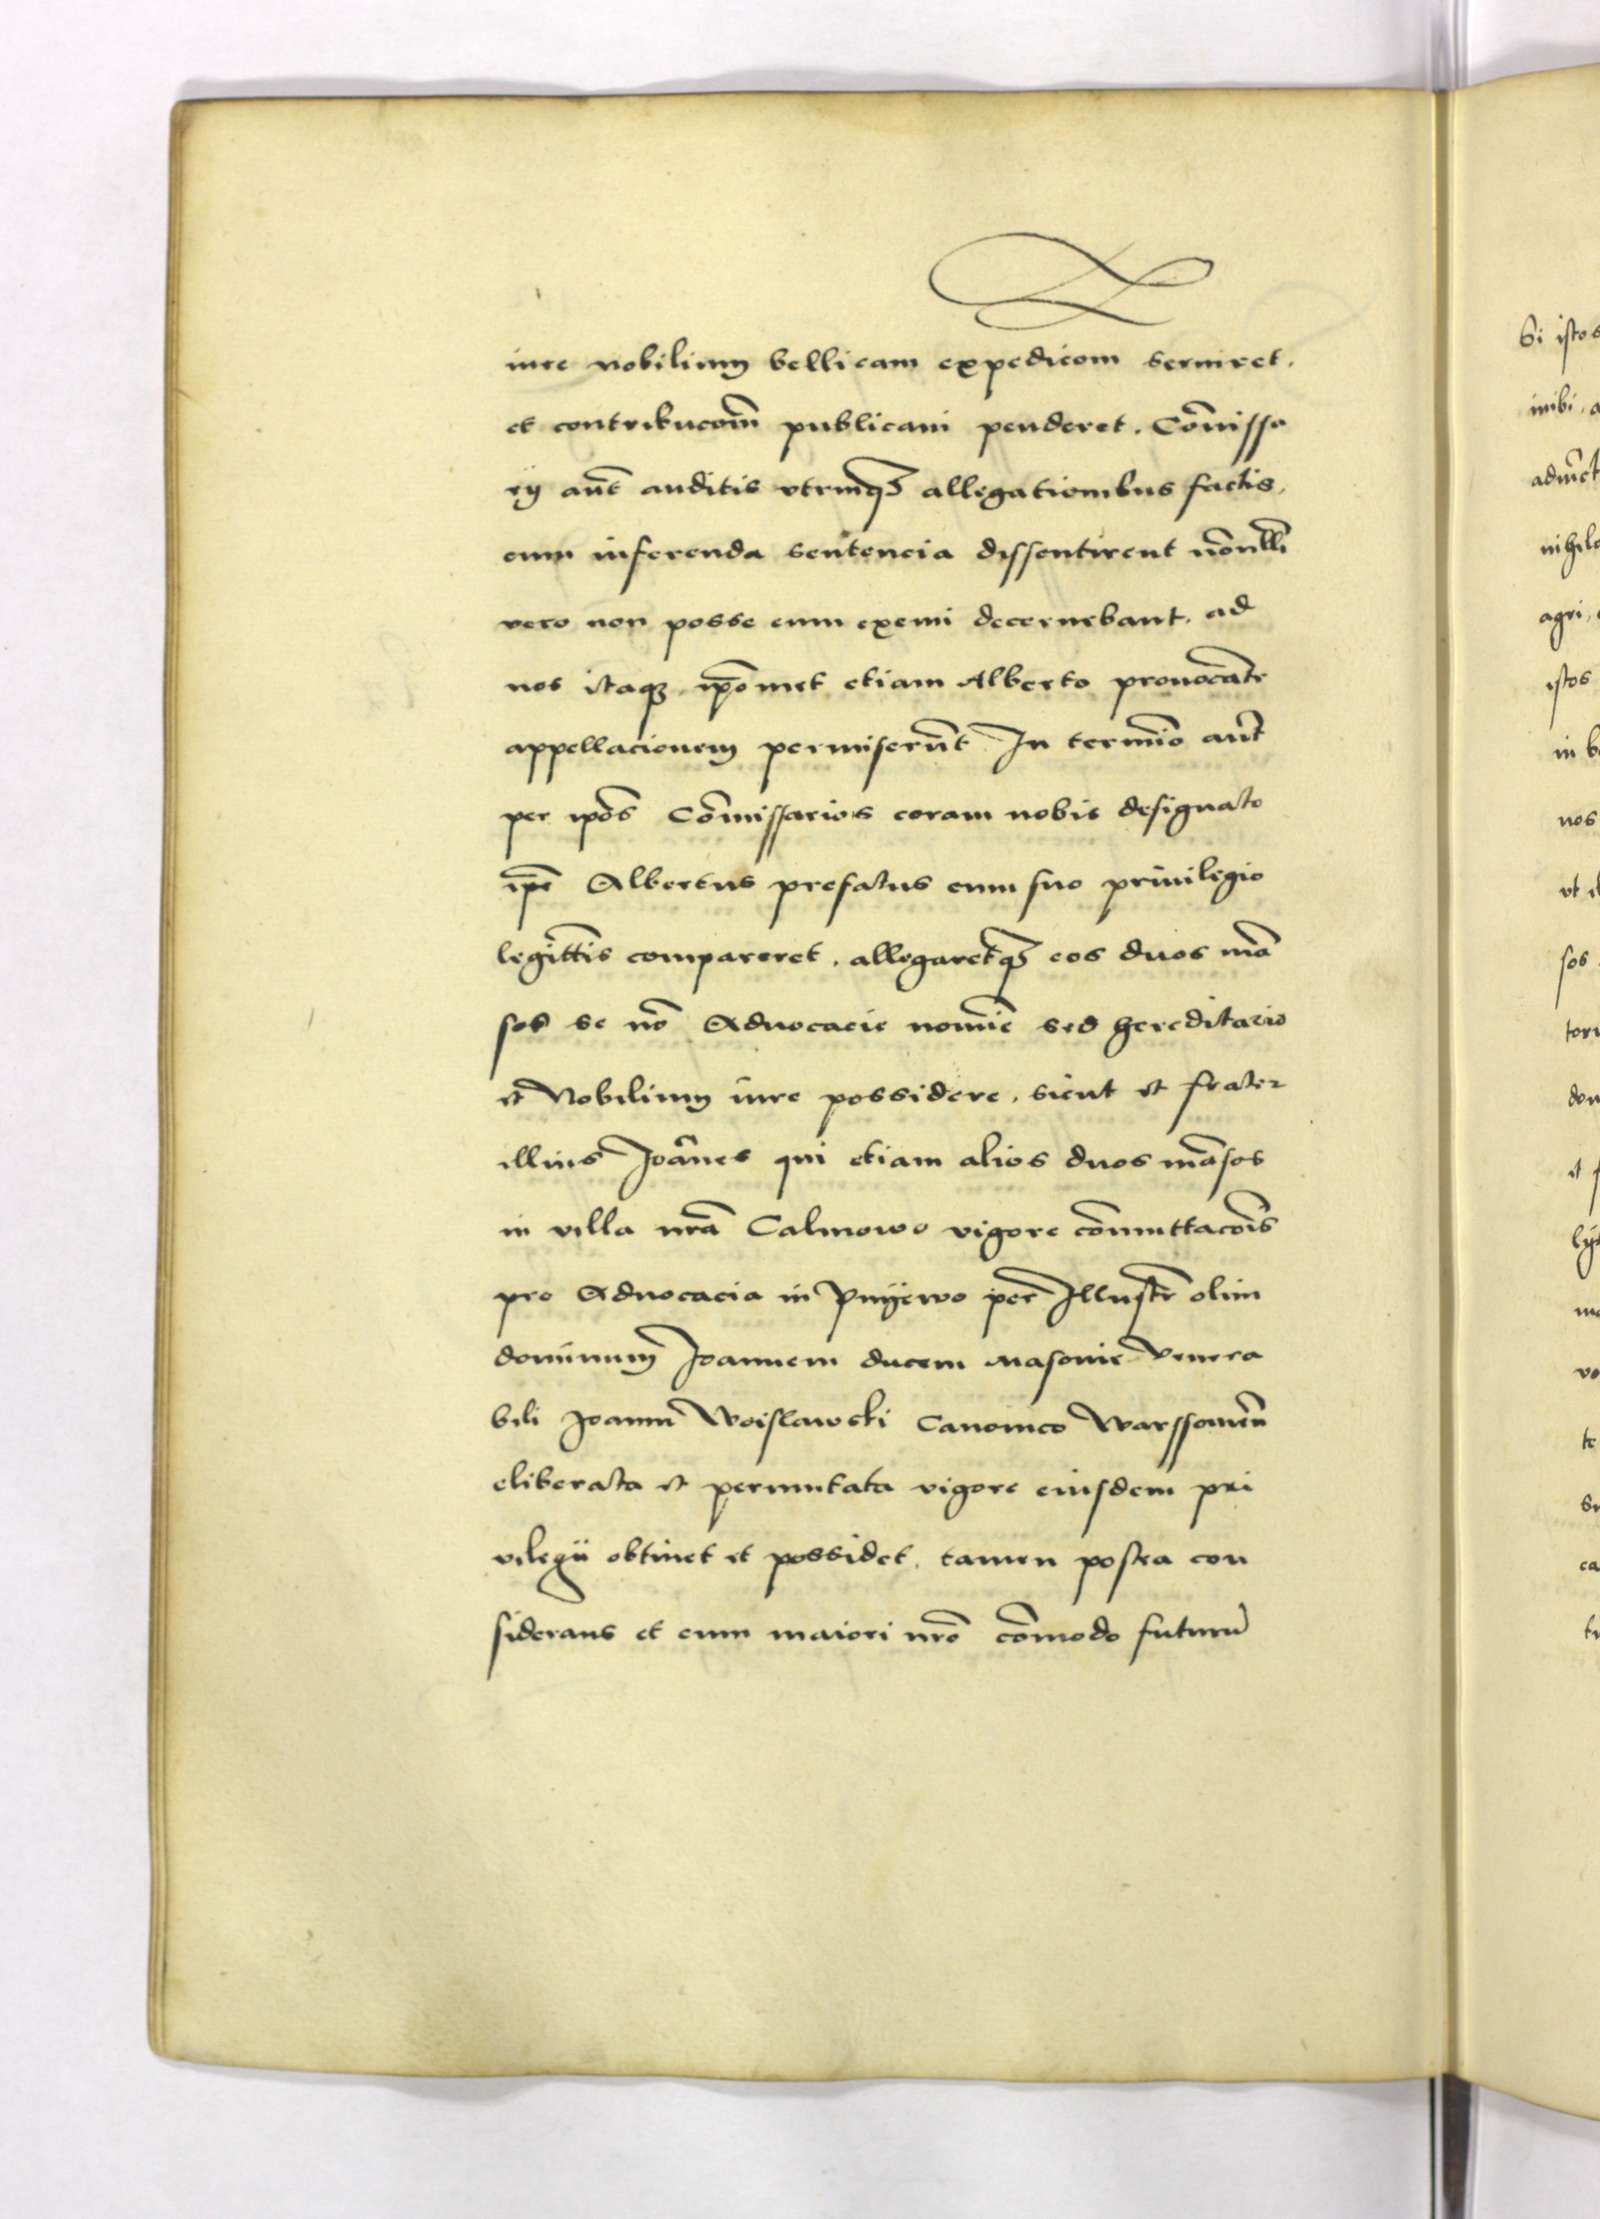 iure nobilium bellicam expedicōm seruiret.
et contribucōm̄ publicam penderet. Cōmissa
rij aūt auditis vtrinqꝫ allegationibus factis,
cum inferenda sentencia dissentirent nōnlli
vero non posse eum exemi decernebant. ad
nos itaqꝫ ip̄omet etiam Alberto prouocātē
appellacionem permiserūt In termīo aūt
per ip̄os Cōmissarios coram nobis designato
ip̄e Albertus prefatus cum suo priuilegio
legittīs compareret. allegaretqꝫ eos duos mā
sos se nō Aduocacie nomīe sed hereditario
et Nobilium iure possidere. sicut et frater
illius Joānes qui etiam alios duos māsos
in villa nrā Calinowo vigore cōmuttacōis
pro Aduocacia in Pnijewo per Illustr̄ olim
dominum Joannem ducem Masouie Venera
bili Joanni Woislawski Canonico Warssouien̄
eliberata et permutata vigore eiusdem pri
vilegii obtinet et possidet. tamen postea con
siderans et cum maiori nrō cōmodo futurū
Si istos
inibi. a
nihilo
agri,
istos
in b
nos
sos